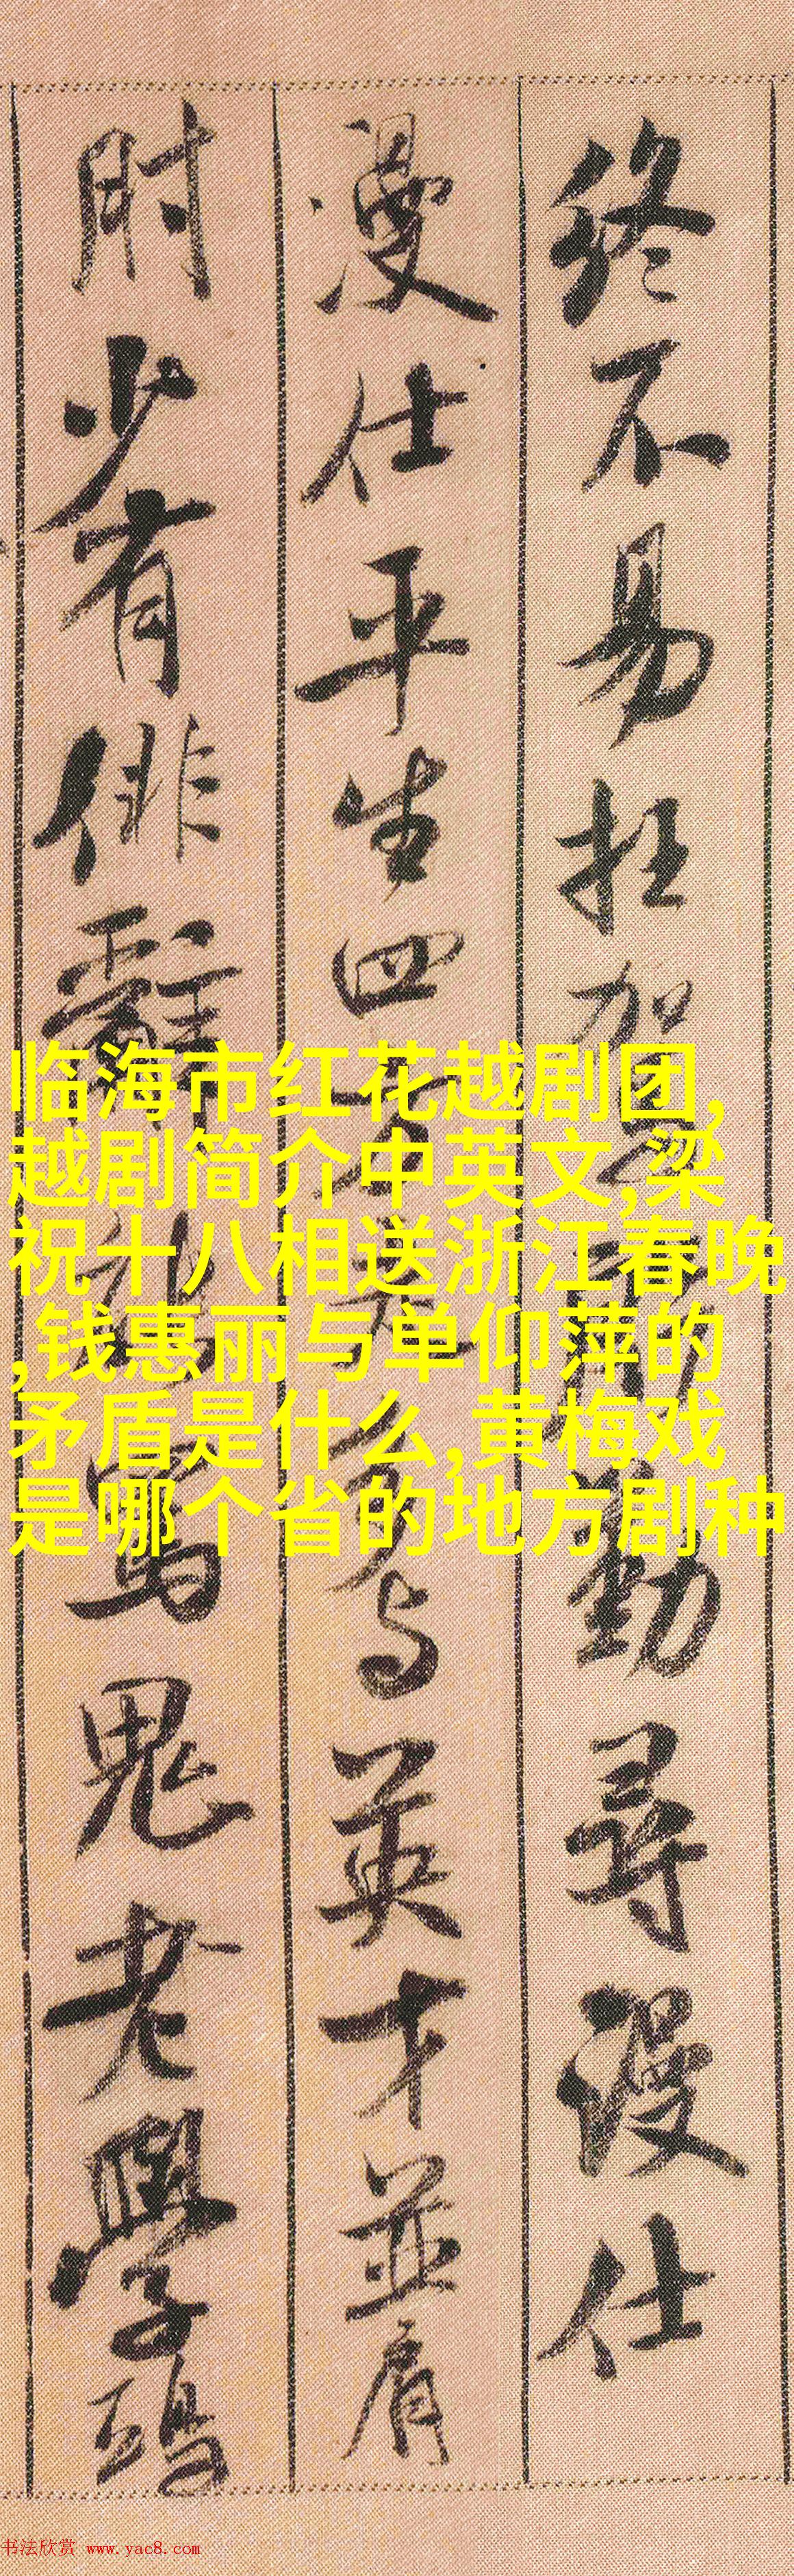 终不易抂 勤尋漫仕
漫仕平生四 与英才並肩
时少有俳辭 寫鬼老學鴟
临海市红花越剧团,
越剧简介中英文,梁
祝十八相送浙江春晚
,钱惠丽与单仰萍的
矛盾是什么,黄梅戏
是哪个省的地方剧种
书法欣赏 www.yac8.com